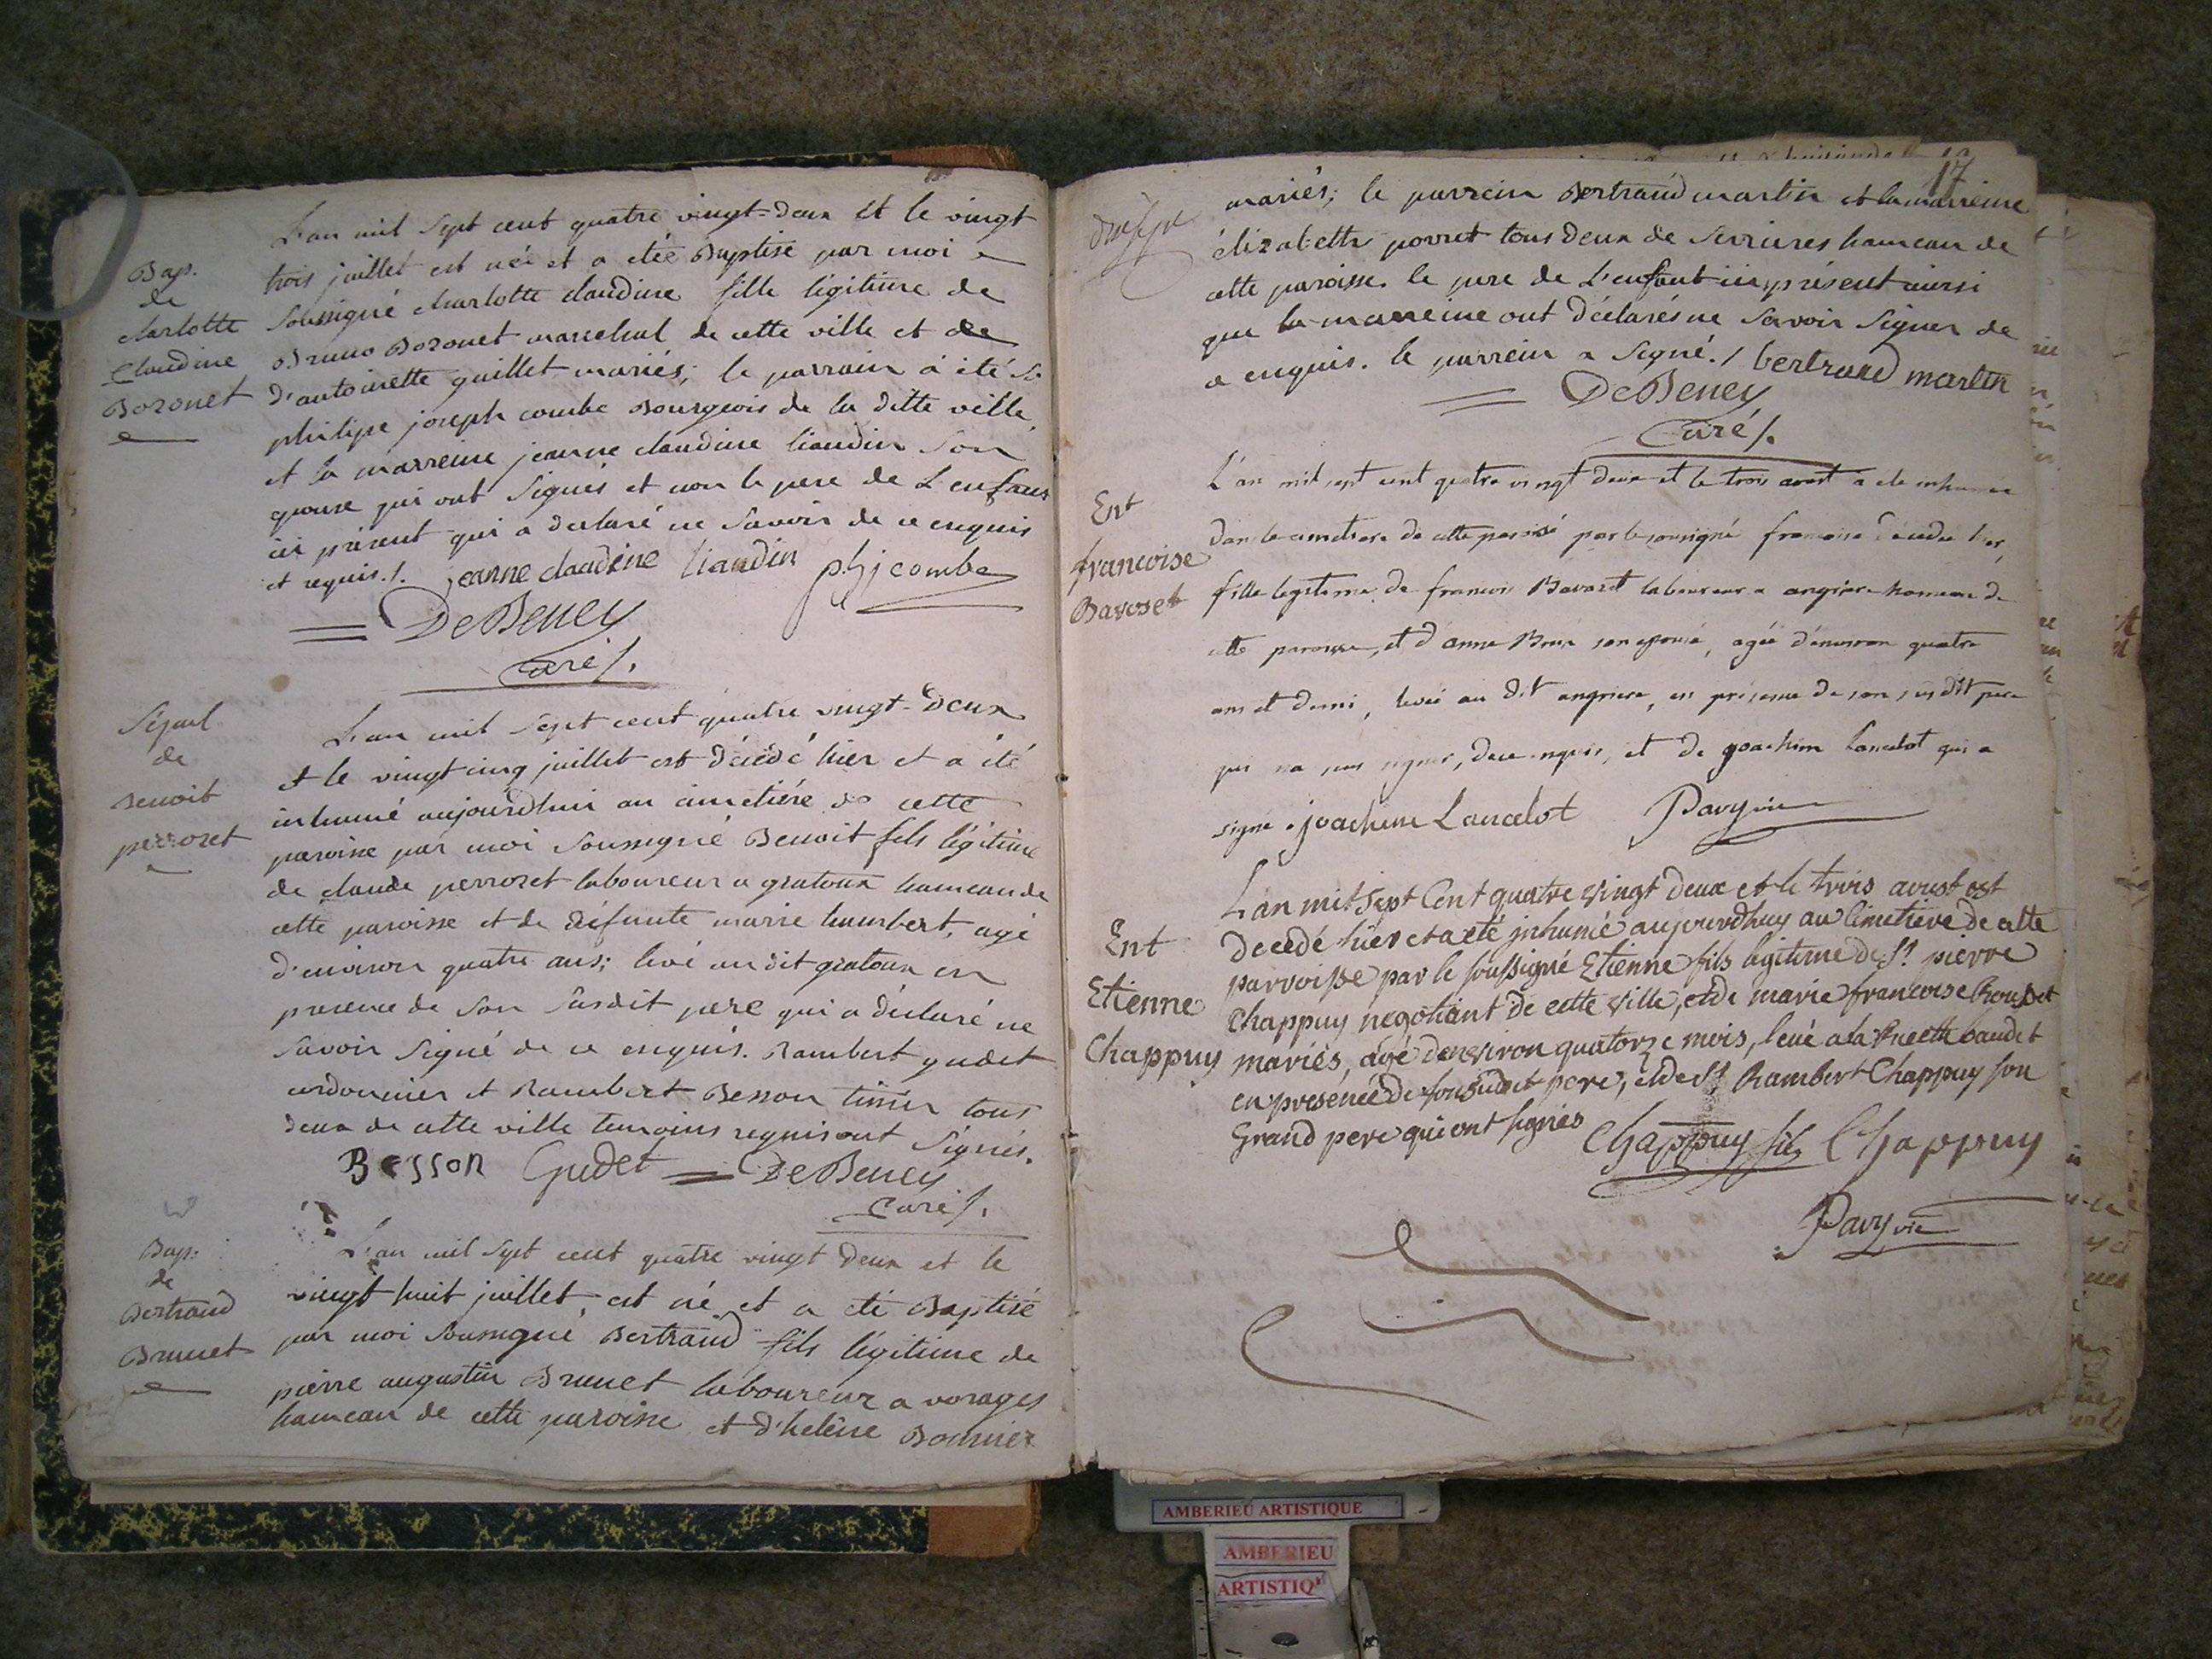 Bap.
de
charlotte
Claudine
Bozonet
L'an mil sept cent quatre vingt-deux et le vingt
trois juillet est née et a etée Baptisé par moi
soussigné charlotte claudine fille légitime de
Bruno Bozonet marechal de cette ville et de
d'antoinette guillet mariés; le parrain à été sr
philipe joseph combe Bourgeois de la ditte ville,
et la marreine jeanne claudine liaudin son
epouse qui ont signés et non le pere de L'enfant
ici présent qui a declaré ne savoir de ce enquis
et requis./. jeanne claudine liaudin phj combe
DeBeney
Curé/.
Sépul
de
Benoit
perrozet
L'an mil sept cent quatre vingt-deux
et le vingt cinq juillet est décédé hier et a été
inhumé aujourdhui au cimetiére de cette
paroisse par moi soussigné Benoit fils légitime
de claude perrozet laboureur a gratoux hameau de
cette paroisse et de défunte marie humbert, agé
d'environ quatre ans; levé au dit gratoux en
presence de son susdit pere qui a déclaré ne
savoir signé de ce enquis. Rambert gudet
cordonnier et Rambert Besson tissier tous
deux de cette ville temoins requis ont signés.
Besson Gudet = DeBeney
Curé/.
Bap.
de
Bertrand
Brunet
L'an mil sept cent quatre vingt deux et le
vingt huit juillet, est né et a été Baptisé
par moi soussigné Bertrand fils légitime de
pierre augustin Brunet laboureur a vorages
hameau de cette paroisse et d'helène Bonnier
17
mariés; le parrein Bertrand martin et la marreine
élizabeth porret tous deux de serrieres hameau de
cette paroisse. le pere de L'enfant ici présent ainsi
que la marreine ont déclarés ne savoir signer de
ce enquis. le parrein a signé./ bertrand martin
DeBeney
Curé/.
Ent
francoise
Bavoset
L'an mil sept cent quatre vingt deux et le trois avost a ete inhumée
dans le cimetiere de cette paroisse par le sousigné francoise décedée hier,
fille legitime de francois Bavoset laboureur a angriere hameau de
cette paroisse, et d'anne son epouse, agée d'environ quatre
ans et demi, levée au dit angriere, en présence de son susdit pere
qui na sçus signer, de ce enquis, et de joachim Lancelot qui a
signé. joachim Lancelot Pavy vic
Ent
Etienne
Chappuy
L'an mil sept Cent quatre vingt deux et le trois avust est
decedé hier et a eté jnhumé aujourdhuy au Cimetiere de cette
parroisse par le soussigné Etienne fils legitime de Sr. pierre
Chappuy negotiant de cette ville, et de marie francoise Rousset
mariés, agé denviron quatorze mois, levé a la baudet
en presence de son susdit pere, et de Sr Rambert Chappuy son
Grand pere qui ont signés Chappuy fils Chappuy
Pavy vic
AMBERIEU ARTISTIQUE
AMBERIEU
ARTISTIQ